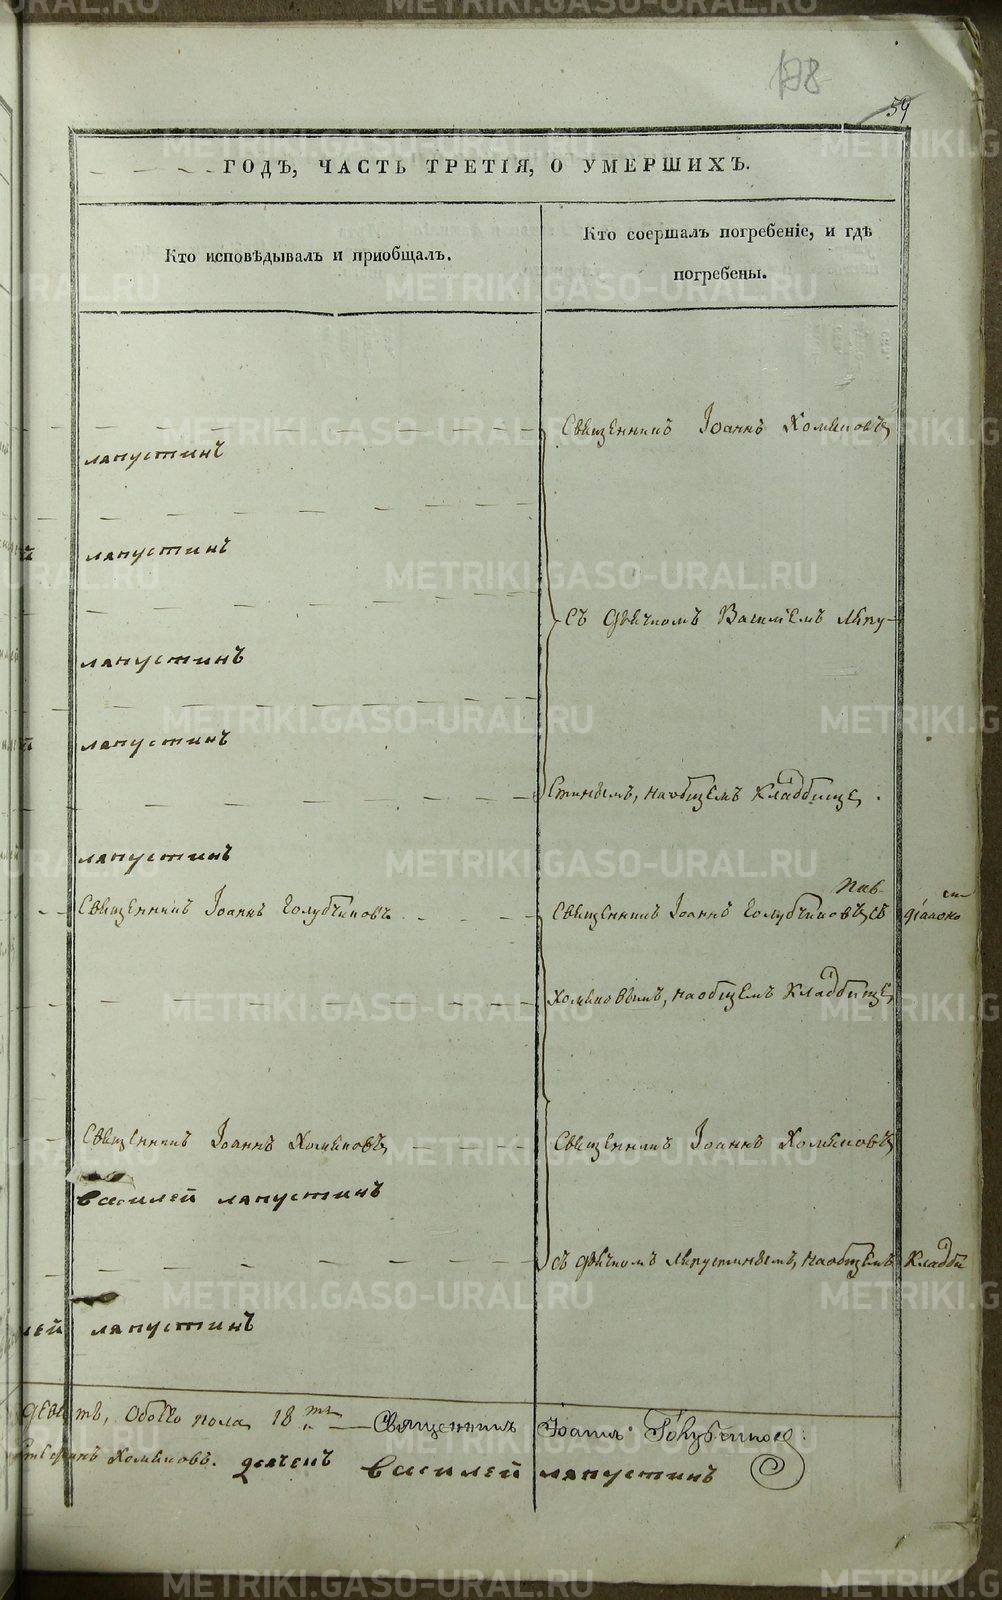 188
59
ГОДЪ, ЧАСТЬ ТРЕТІЯ, О УМЕРШИХЪ.
Кто исповѣдывалъ и пріобщалъ.
Кто соершалъ погребеніе, и гдѣ
погребены.
Священникъ Іоаннъ Хомяковъ,
лапустинъ
лапустинъ
съ дьячкомъ Василіемъ Лапу-
лапустинъ
лапустинъ
стинымъ, на общемъ кладбище.
лапустинъ
Священникъ Іоаннъ Голубчиковъ
Священникъ Іоаннъ Голубчиковъ, съ діакономъ
Хомяковымъ, на общемъ кладбище,
Священникъ Іоаннъ Хомяковъ,
Священникъ Іоаннъ Хомяковъ,
василей лапустинъ
съ дьячкомъ Лапустинымъ, на общемъ кладби
лей лапустинъ
девять, обоего пола 18ть Священникъ Іоаннъ Голубчиковъ
Хомяковъ. дьячекъ василей лапустинъ
METRIKI.GASO-URAL.RU